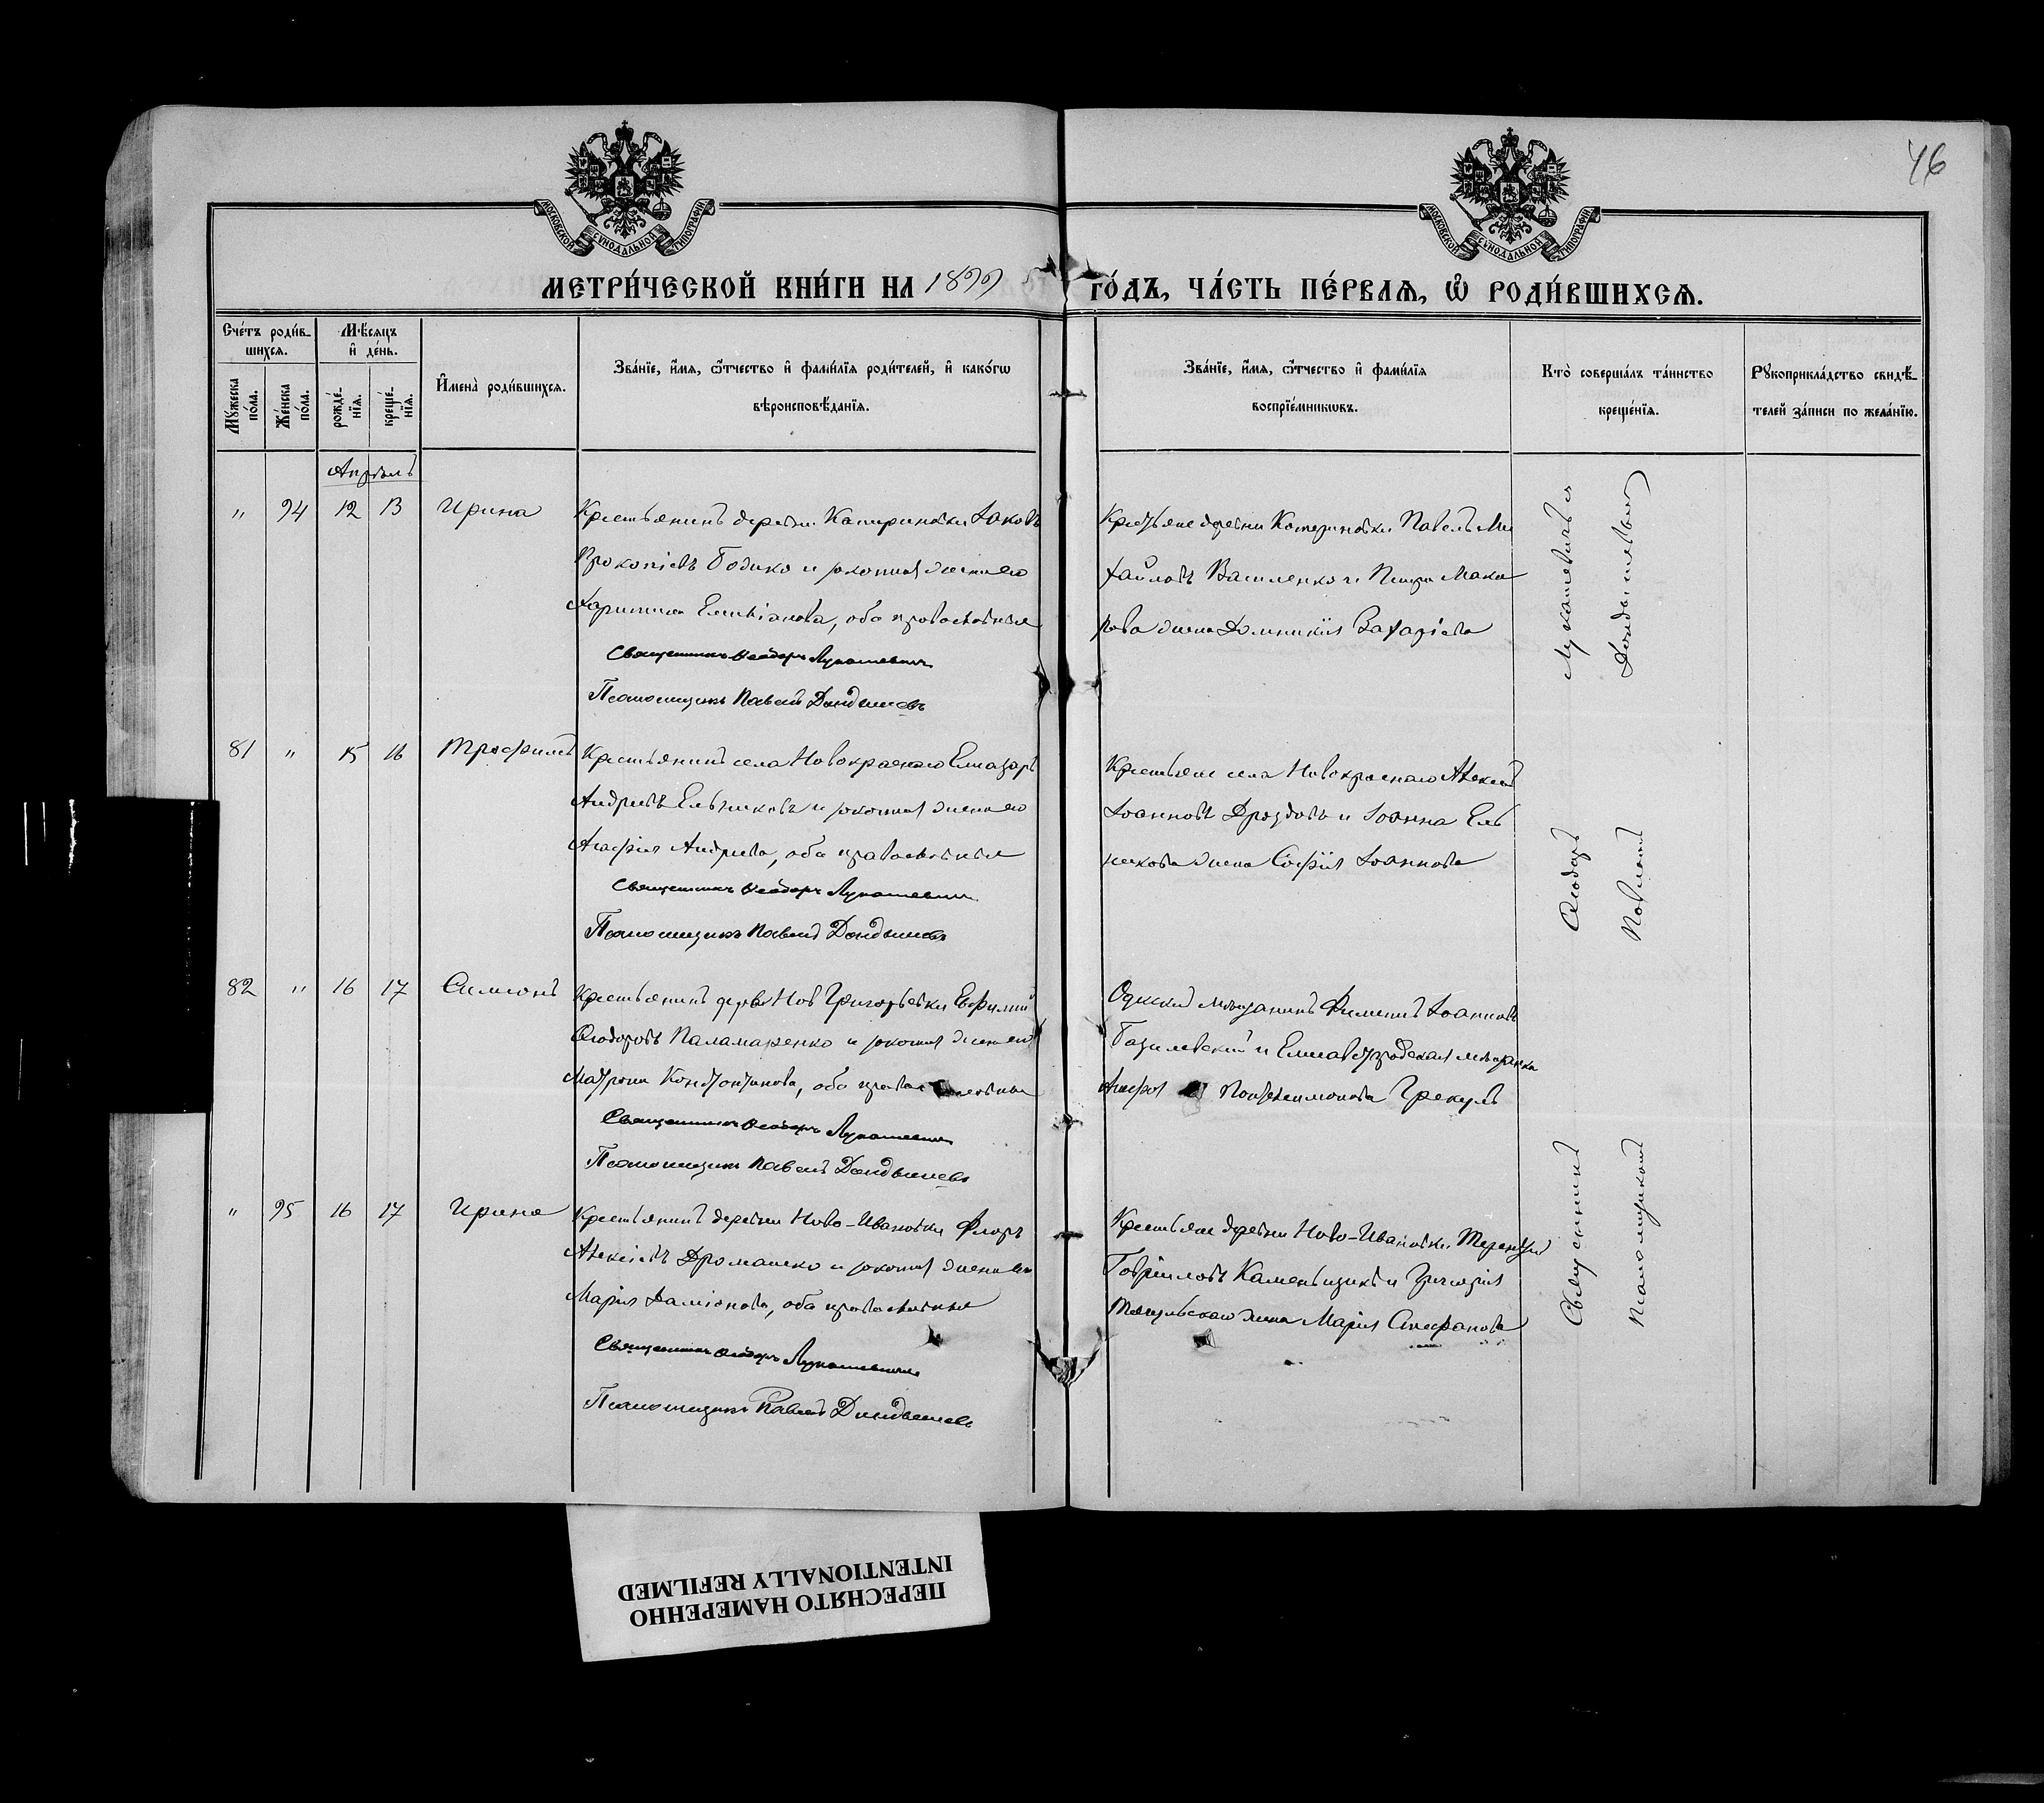 46
МОСКОВСКОЙ СУНОДАЛЬНОЙ ТИПОГРАФІИ
МОСКОВСКОЙ СУНОДАЛЬНОЙ ТИПОГРАФІИ
МЕТРИ́ЧЕСКОЙ КНИ́ГИ НА 1899 ГО́ДЪ, ЧА́СТЬ ПЕ́РВАЯ, Ѡ РОДИ́ВШИХСЯ.
Сче́тъ роди́в-
шихся.
Мꙋжеска по́ла.
Же́нска по́ла.
Мѣ́сяцъ
и҆ де́нь.
рожде́-
нїя.
креще́-
нїя.
И҆мена̀ роди́вшихся.
Зва́нїе, и҆́мя, ѻ҆́тчество и҆ фами́лїя роди́телей, и҆ како́гѡ
вѣроисповѣ́данїя.
Зва́нїе, и҆́мя, ѻ҆́тчество и҆ фами́лїя
воспрїе́мникѡвъ.
Кто̀ соверша́лъ та́инство
креще́нїя.
Рꙋкоприкла́дство свидѣ́-
телей за́писи по жела́нїю.
Апрѣль
" 94 12 13 Ирина
Крестьянинъ деревни Катериновки Іаковъ
Прокопіевъ Бодико и законная жена его
Харитина Емиліанова, оба православные
Священникъ Ѳеодоръ Лукашевичъ
Псаломщикъ Павелъ Дандышевъ
Крестьяне деревни Катериновки Павелъ Ми
хайловъ Василенко и
рова жена Домникія Захаріева
81 " 15 16 Трофимъ
Крестьянинъ села Новокраснаго Елиазаръ
Андреевъ Ельниковъ и законная жена его
Агафія Андреева, оба православные
Священникъ Ѳеодоръ Лукашевичъ
Псаломщикъ Павелъ Дандышевъ
Крестьяне села Новокраснаго Алексій
Іоанновъ Дроздовъ и Іоанна Ель
никова жена Софія Іоаннова
82 " 16 17 Симеонъ
Крестьянинъ дерев Нов Григорьевки Евфимій
Ѳеодоровъ Паламаренко и законная жена его
Матрона Константинова, оба православные
Священникъ Ѳеодоръ Лукашевичъ
Псаломщикъ Павелъ Дандышевъ
Одесскій мѣщанинъ Филиппъ Іоанновъ
Базилевскій и Елисаветградская мѣщанка
Агафія Пантелеимонова Грекулъ
" 95 16 17 Ирина
Крестьянинъ деревни Ново-Ивановки Флоръ
Алексіевъ Дромашко и законная жена его
Марія Даміанова, оба православные
Священникъ Ѳеодоръ Лукашевичъ
Псаломщикъ Павелъ Дандышевъ
Крестьяне деревни Ново-Ивановки Терентій
Гавріиловъ Каменьщикъ и Григорія
жена Марія Стефанова
Священникъ Ѳеодоръ Лукашевичъ
Псаломщикомъ Павломъ Дандышевымъ
ПЕРЕСНЯТО НАМЕРЕННО
INTENTIONALLY REFILMED